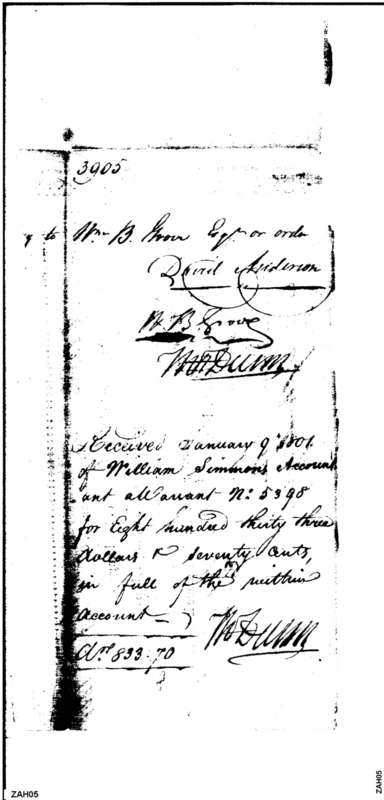 3905
y to Wm B. Grove Esqr or order
David Anderson
W. B. Grove
Received January 9th 1801
of William Simmons Account
ant a Warrant No. 5398
for Eight hundred thirty three
dollars & seventy Cents,
in full of the within
Account
833.70
ZAH05
ZAH05